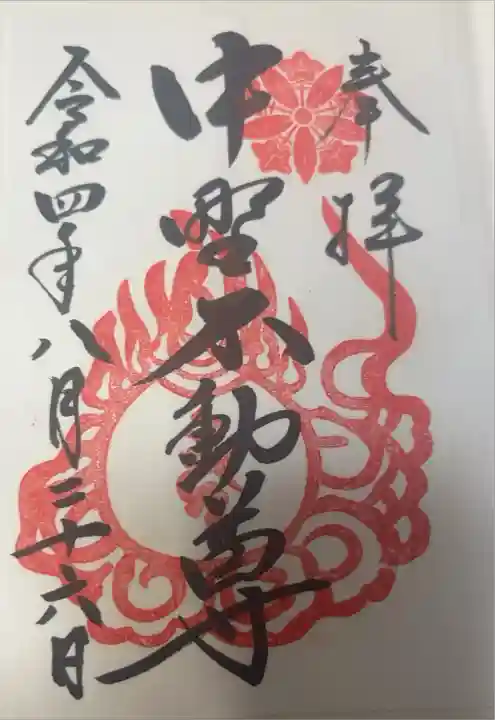 奉拝
中野不動尊
令和四年八月二十六日